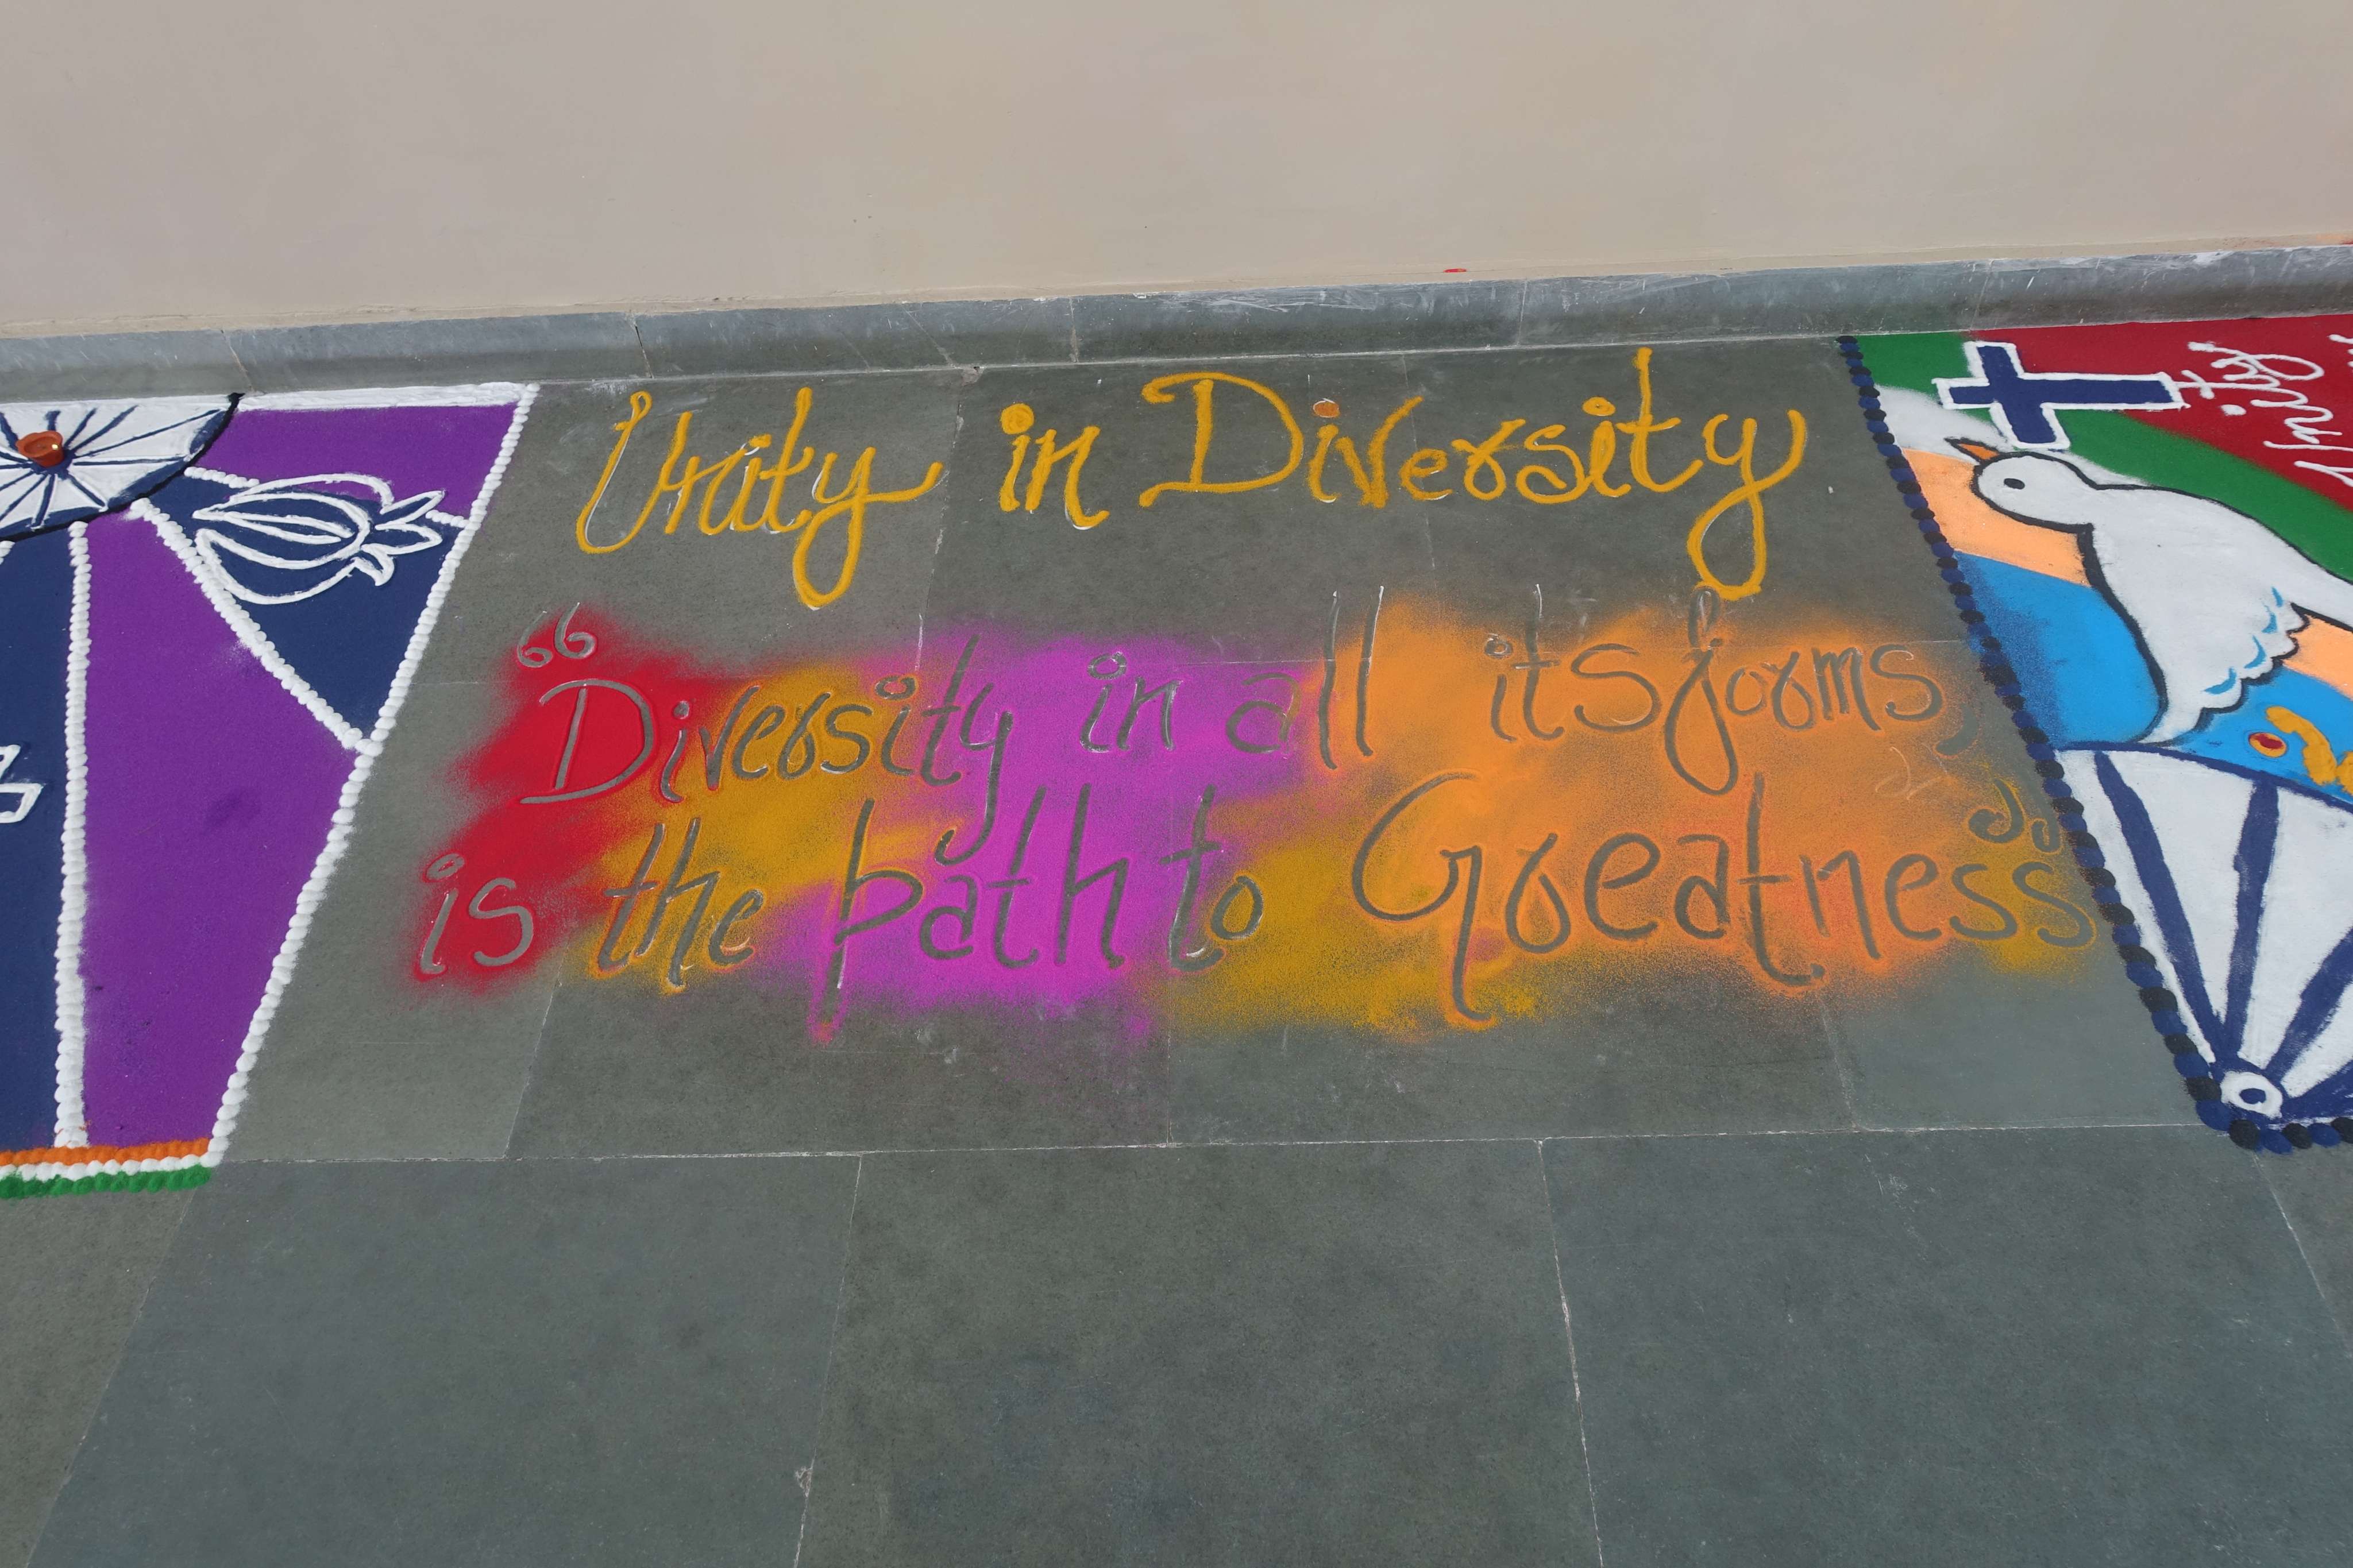 Unity in Diversity
“Diversity in all its forms,
is the path to Greatness”
Unity